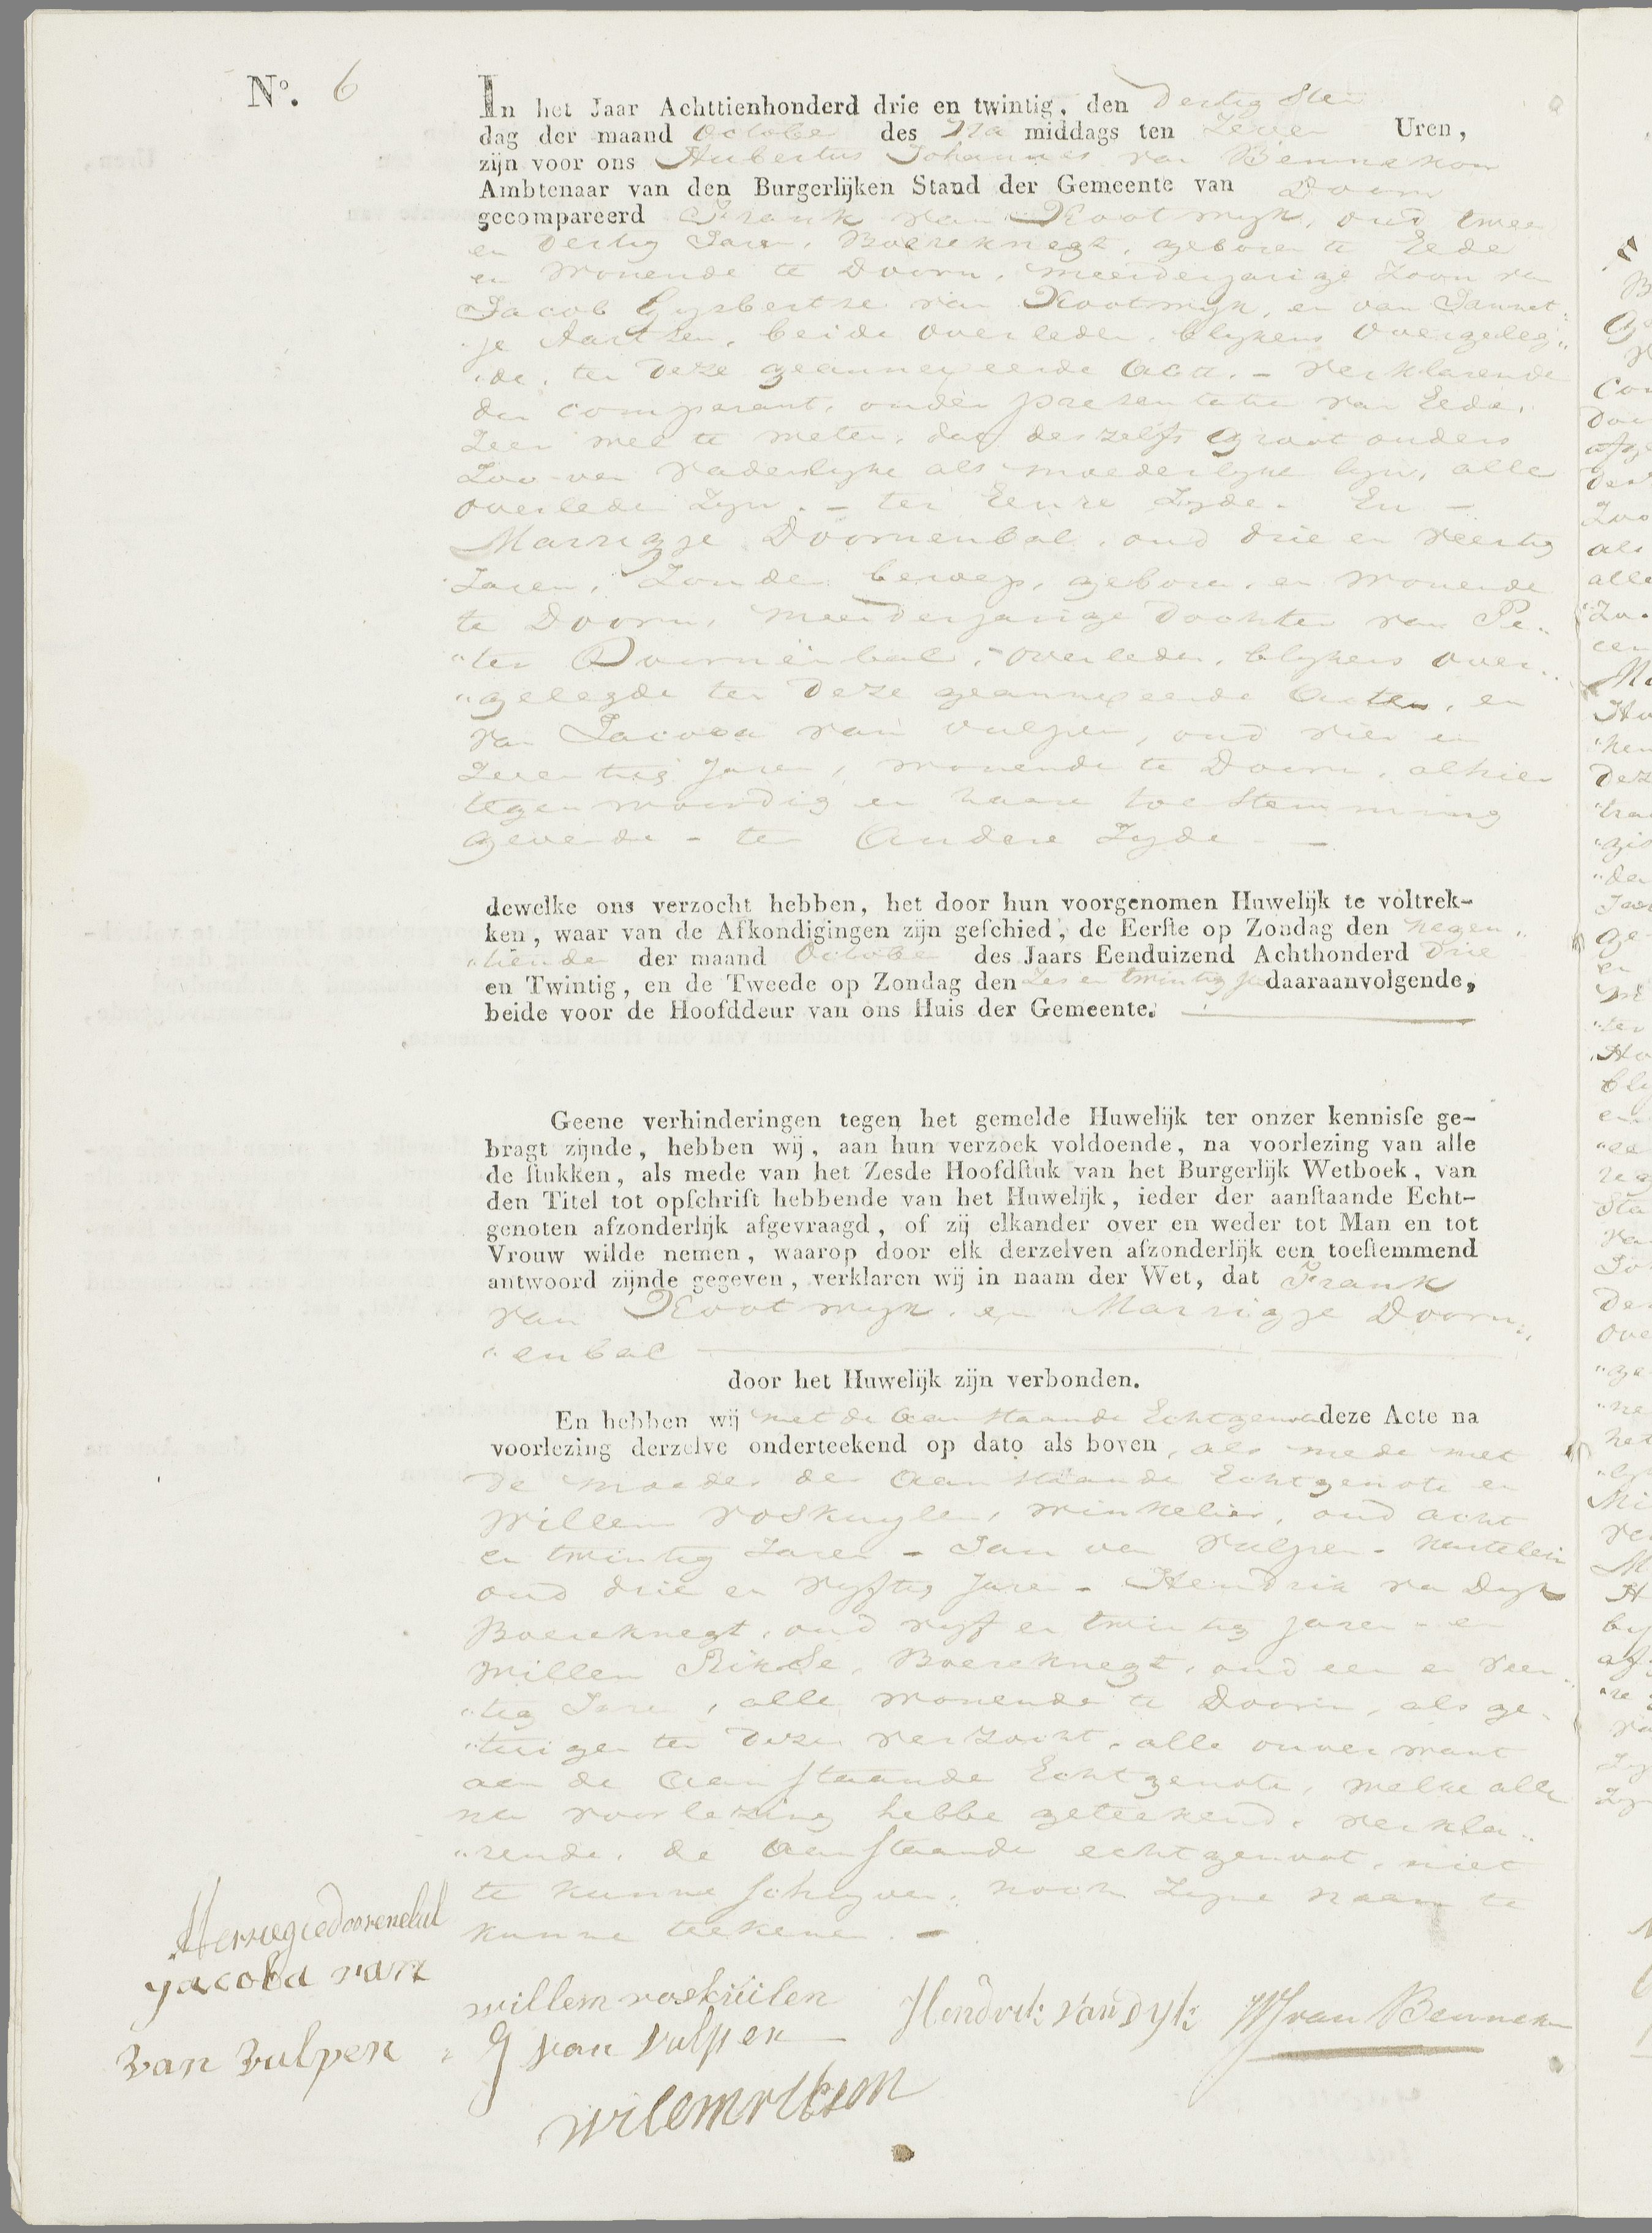 No. 6
In het Jaar Achttienhonderd drie en twintig, den Dertig sten
dag der maand October des Na middags ten Zeven Uren,
zijn voor ons Hubertus Johannes van Bennekom
Ambtenaar van den Burgerlijken Stand der Gemeente van Doorn
gecompareerd Frank van Kootwyk, oud twee
en Dertig Jaren, Boereknegt, geboren te Eede
en Wonende te Doorn, meerderjarige Zoon van
Jacob Gysbertse van Kootwyk, en van Jannet„
„je Aartsen, beide overleden, blykens overgeleg„
„de, ter deze geannexeerde Acte. – Verklarende
den comparant, onder presentatie van Eede,
Zeer wel te weten, dat deszelfs groot ouders
Zoo van vaderlyke als moederlyke lyn, alle
overleden Zyn. – ter Eenre Zyde. En –
Marrigje Doornenbal, oud drie en veertig
Jaren, Zonder beroep, geboren, en Wonende
te Doorn, Meerderjarige Dochter van Pe„
„ter Doornenbal, – overleden, blykens over„
„gelegde ter deze geannexeerde Acten, en
van Jacoba van Vulpen, oud vier en
Zeventig Jaren, wonende te Doorn, alhier
tegenwoordig en haare toestemming
gevende – ter Andere Zyde –
dewelke ons verzocht hebben, het door hun voorgenomen Huwelijk te voltrek-
ken, waar van de Afkondigingen zijn geschied, de Eerste op Zondag den negen„
„tiende der maand October des Jaars Eenduizend Achthonderd Drie
en Twintig, en de Tweede op Zondag den Zes en twintigste daaraanvolgende,
beide voor de Hoofddeur van ons Huis der Gemeente.
Geene verhinderingen tegen het gemelde Huwelijk ter onzer kennisse ge-
bragt zijnde, hebben wij, aan hun verzoek voldoende, na voorlezing van alle
de stukken, als mede van het Zesde Hoofdstuk van het Burgerlijk Wetboek, van
den Titel tot opschrift hebbende van het Huwelijk, ieder der aanstaande Echt-
genoten afzonderlijk afgevraagd, of zij elkander over en weder tot Man en tot
Vrouw wilde nemen, waarop door elk derzelven afzonderlijk een toestemmend
antwoord zijnde gegeven, verklaren wij in naam der Wet, dat Frank
van Kootwyk, en Marrigje Doorn„
„enbal
door het Huwelijk zijn verbonden.
En hebben wij met de Aanstaande Echtgenote deze Acte na
voorlezing derzelve onderteekend op dato als boven, als mede met
de moeder der Aanstaande Echtgenote en
Willem Roskuylen, winkelier, oud acht
en twintig Jaren – Jan van Vulpen – kastelein
oud drie en vyftig Jaren – Hendrik van Dyk
Boereknegt, oud vyf en twintig Jaren – en
Willem Rikse, Boereknegt, oud een en veer„
„tig Jaren, alle wonende te Doorn, als ge„
„tuigen ten deze verzocht, alle onverwant
aan de Aanstaande Echtgenote, welke alle
na voorlezing hebbe geteekend, verkla„
„rende, de Aanstaande echtgenoot, niet
te kunne schryven, noch Zyne naam te
kunne teekenen. –
Merregiedoorenebal
jacoba van
van vulpen
willem roskuilen
J van Vulpen
Hendrik van Dyk
HJ van Bennekom
Wilemrikson